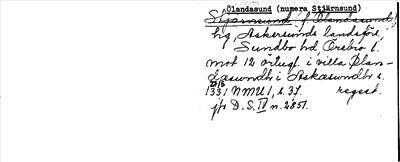 Olandasund (numera Stjärnsund)
Stjärnsund f. Olandasund,
hg, Askersunds landsförs,
Sundbo hd, Örebro l.
mot 12 örtugl. i villa Vlan-
dasundh i Askasundh s.
22/3
1331 NMU 1, s. 37. regest.
jfr D. S. IV n. 2851.